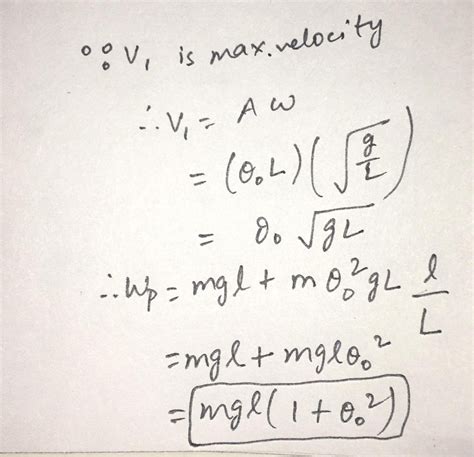 ∵ V₁ is max. velocity
∴ V₁ = A ω
= (θ₀L) (√(g/L))
= θ₀ √gL
∴ Wp = mgl + m θ₀² gL l/L
= mgl + mglθ₀²
= mgl(1 + θ₀²)